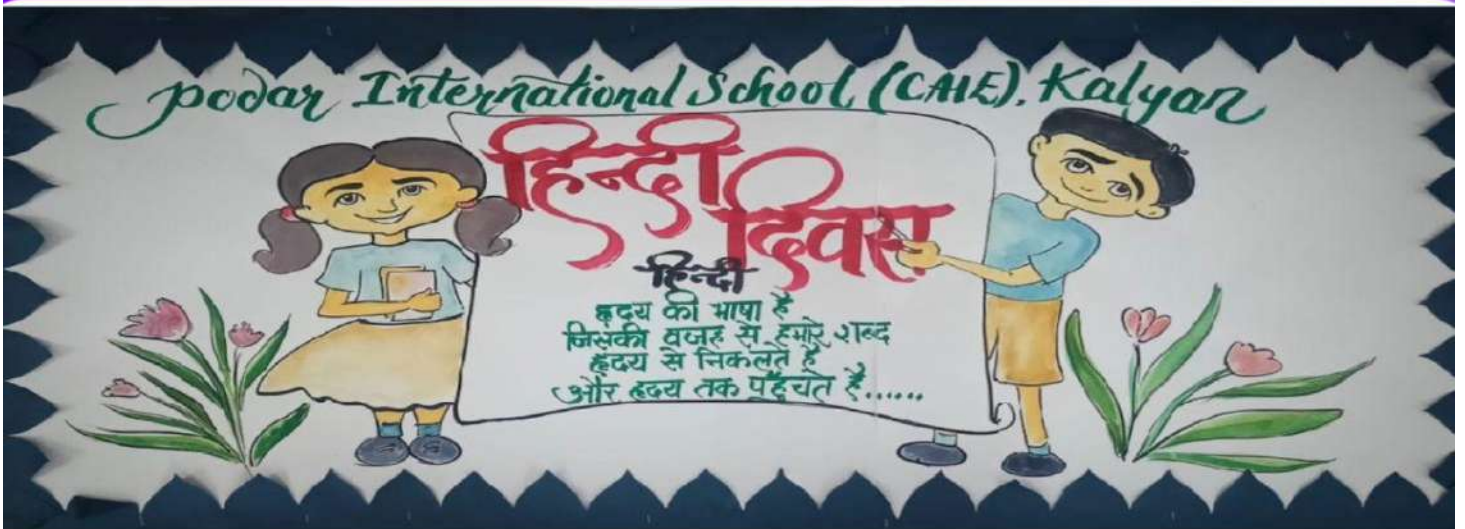 Podar International School (CAIE), Kalyan
हिन्दी
दिवस
हिन्दी
हृदय की भाषा है
जिसकी वजह से हमारे शब्द
हृदय से निकलते है
और हृदय तक पहुँचते है......